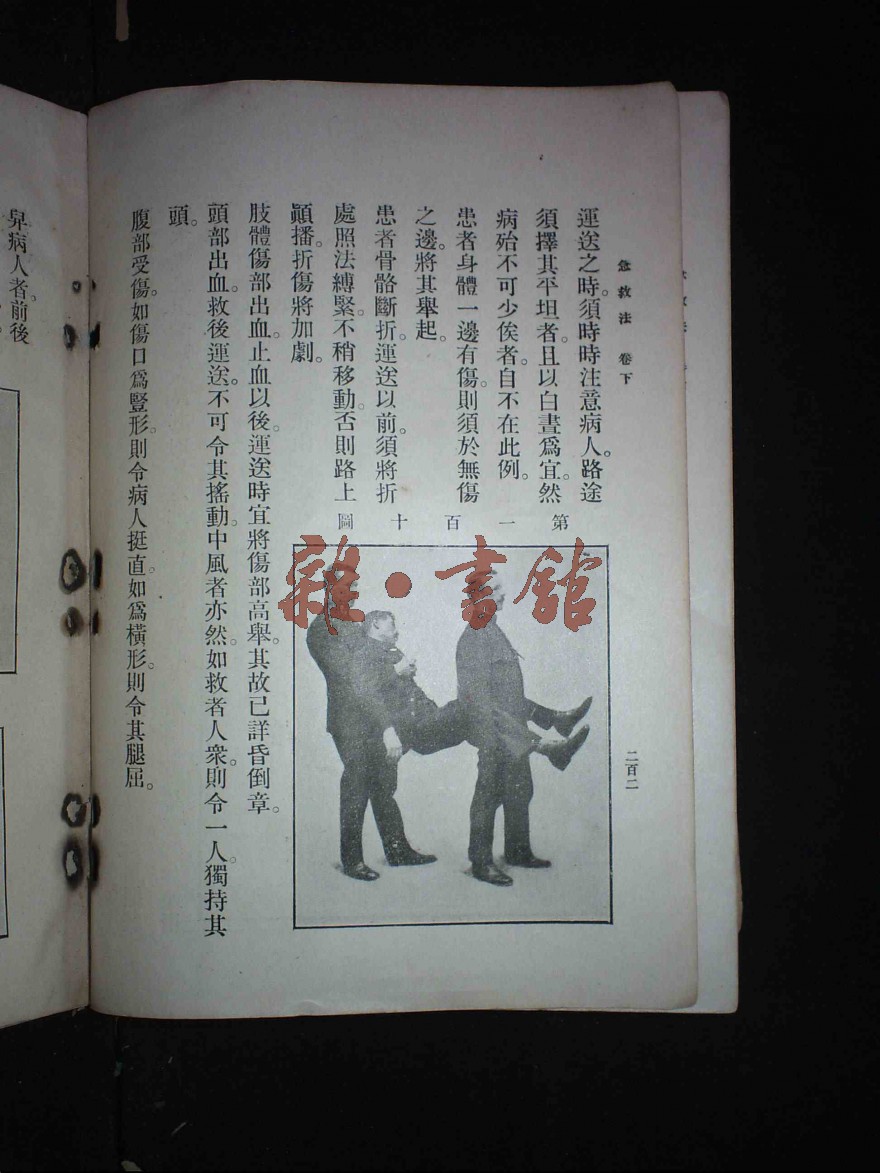 急救法 卷下
二百二
運送之時。須時時注意病人。路途
須擇其平坦者。且以白晝爲宜。然
病殆不可少俟者。自不在此例。
患者身體一邊有傷。則須於無傷
之邊。將其舉起。
患者骨骼斷折。運送以前。須將折
處照法縛緊。不稍移動。否則路上
顚播。折傷將加劇。
第一百十圖
肢體傷部出血。止血以後。運送時宜將傷部高舉。其故已詳昏倒章。
頭部出血。救後運送。不可令其搖動。中風者亦然。如救者人衆。則令一人。獨持其
頭。
腹部受傷。如傷口爲豎形。則令病人挺直。如爲橫形。則令其腿屈。
舁病人者。前後
雜·書館